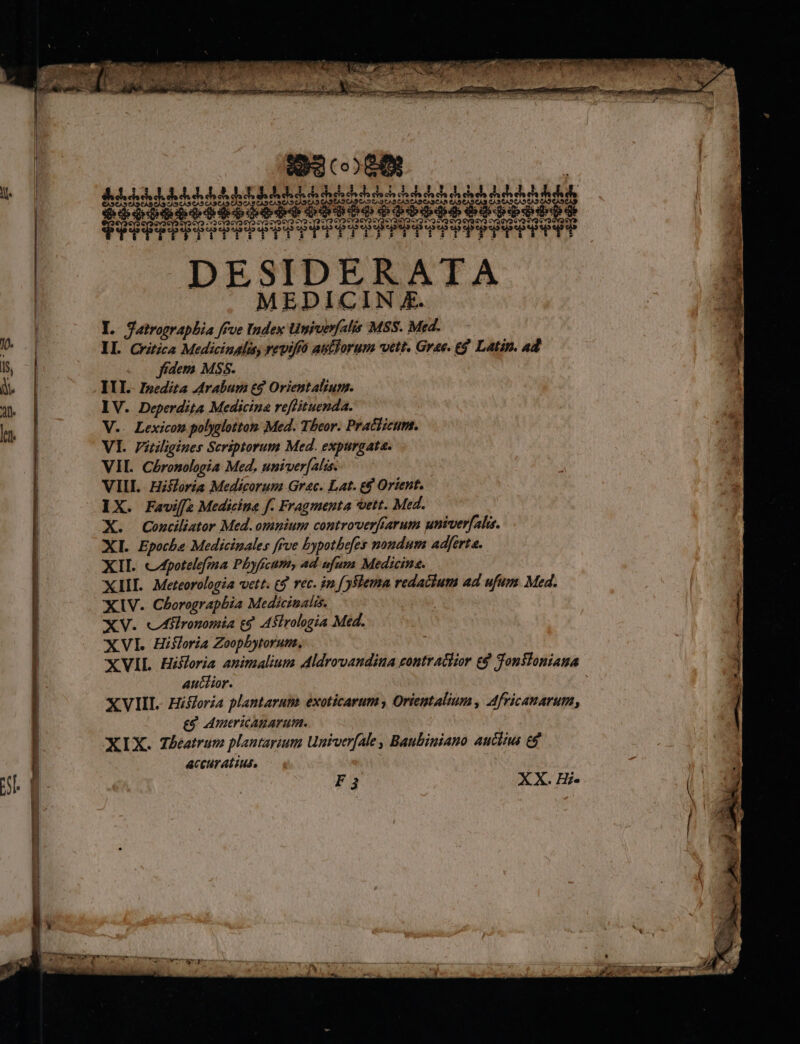 (o)
DESIDERATA
MEDICINÆ.
I. Jatrographia ſive Index Univerſalis MSS. Med.
II. Critica Medicinalis, reviſio auctorum vett. Græc. & Latin. ad
fidem MSS.
III. Inedita Arabum & Orientalium.
IV. Deperdita Medicinæ reſtituenda.
V. Lexicon polyglotton Med. Theor. Practicum.
VI. Vitiligines Scriptorum Med. expurgatæ.
VII. Chronologia Med. univerſalis.
VIII. Hiſtoria Medicorum Græc. Lat. & Orient.
IX. Faviſſæ Medicinæ ſ. Fragmenta vett. Med.
X. Conciliator Med. omnium controverſiarum univerſalis.
XI. Epochæ Medicinales ſive hypotheſes nondum adſertæ.
XII. Apoteleſma Phyſicum, ad uſum Medicinæ.
XIII. Meteorologia vett. & rec. in ſyſtema redactum ad uſum Med.
XIV. Chorographia Medicinalis.
XV. Aſtronomia & Aſtrologia Med.
XVI. Hiſtoria Zoophytorum,
XVII. Hiſtoria animalium Aldrovandina contractior & Jonſtoniana
auctior.
XVIII. Hiſtoria plantarum exoticarum, Orientalium, Africanarum,
& Americanarum.
XIX. Theatrum plantarium Univerſale, Bauhiniano auctius &
accuratius.
F 3 XX. Hi-